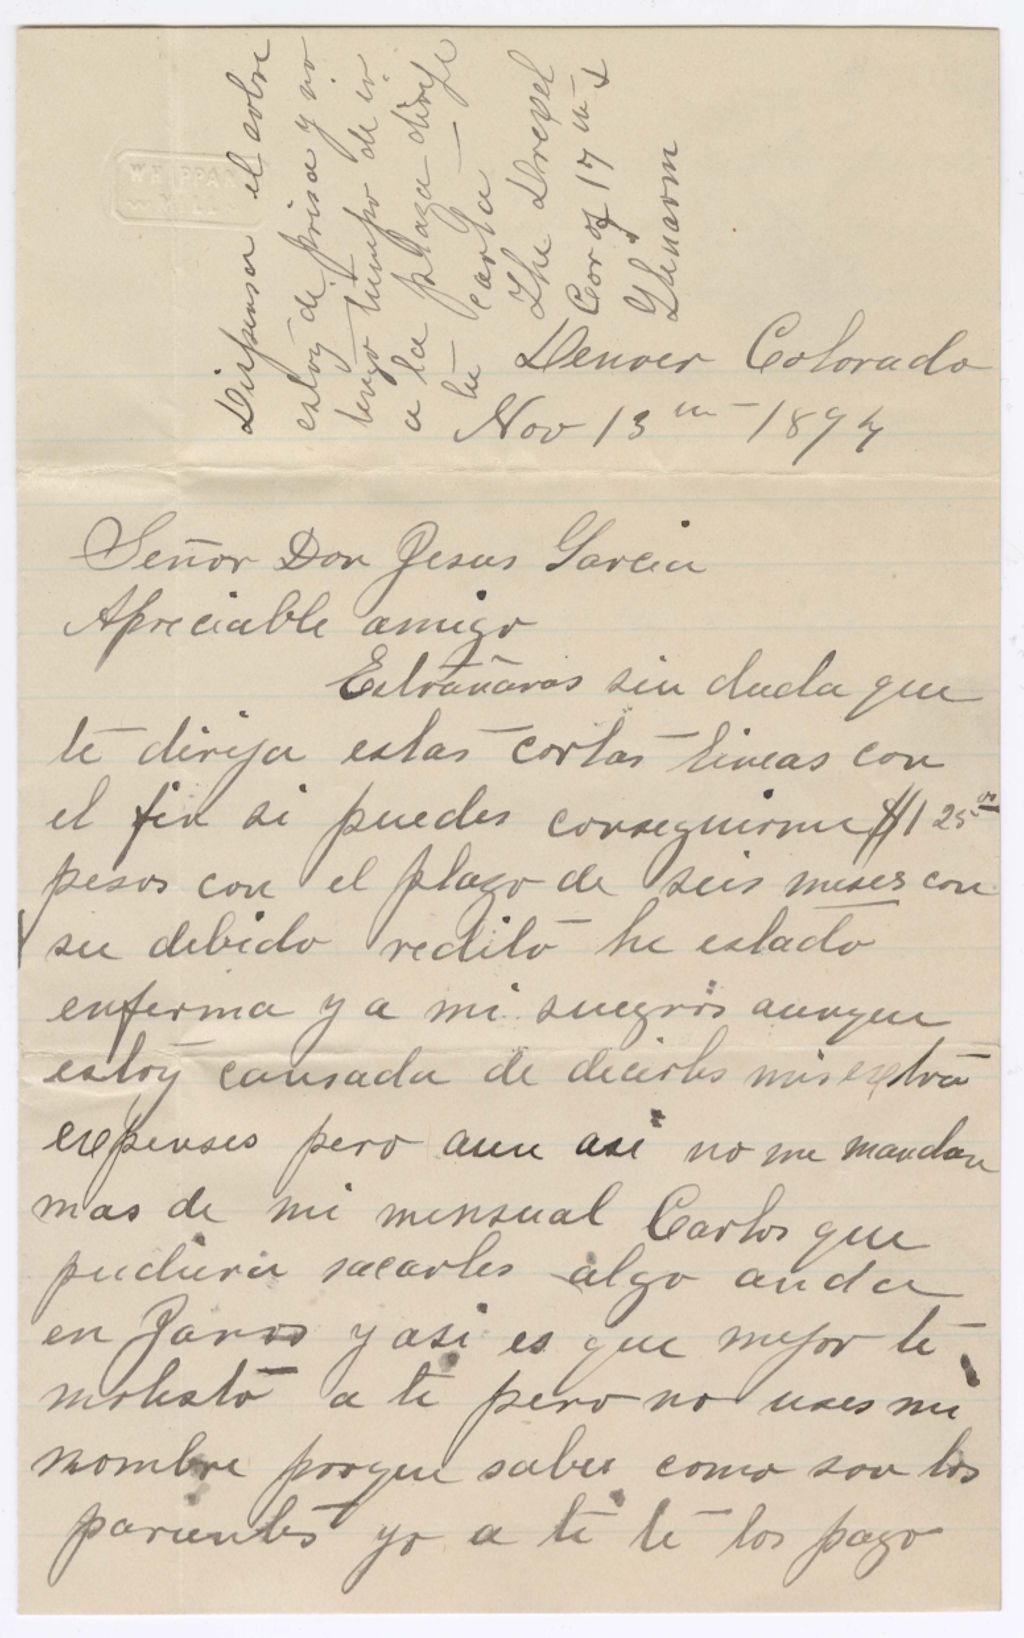 Dispensa el sobre
estoy de prisa y no
tengo tiempo de ir
a la plaza dirije
tu carta —
The Drexel
Cor of 17 th &
Glenarm
Denver Colorado
Nov 13 th 1897
Señor Don Jesus Garcia
Apreciable amigo
Estrañaras sin duda que
te dirija estas cortas lineas con
el fin si puedes conseguirme $125 00
pesos con el plazo de seis meses con
su debido redito he estado
enferma y a mi suegros aunque
estoy cansada de decirles mis extra
expenses pero aun asi no me mandan
mas de mi mensual Carlos que
pudiera sacarles algo anda
en Janos y asi es que mejor te
molesto a ti pero no uses mi
nombre porque sabes como son los
parientes yo a ti te los pago
WHIPPANY
MILLS